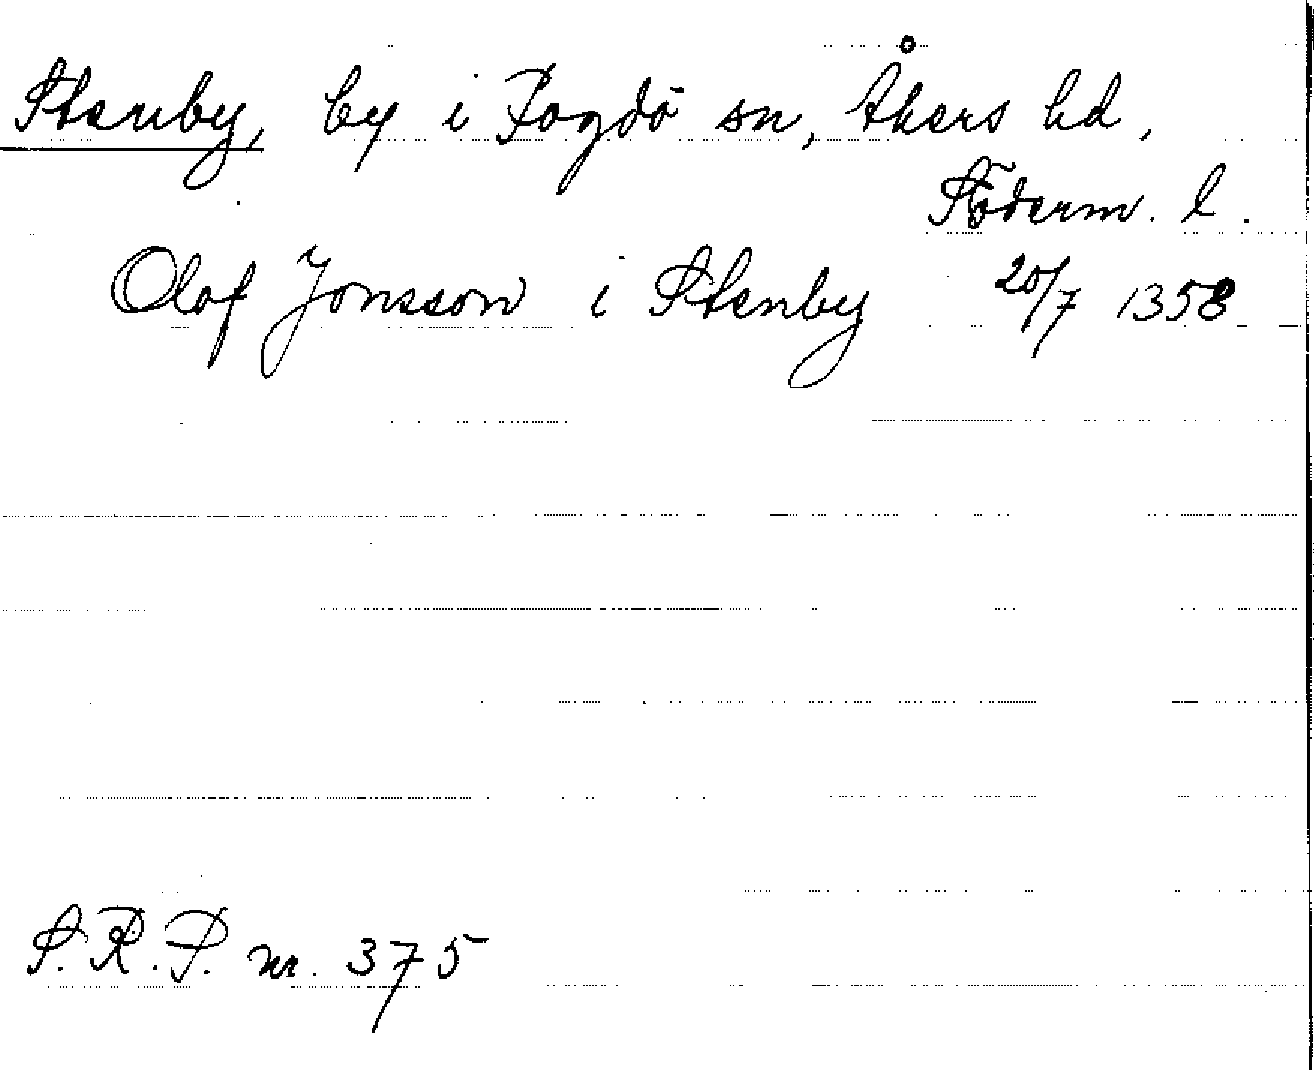 Stenby, by i Fogdö sn, Åkers hd,
Söderm. l.
Olof Jonsson i Stenby 20/7 1358
S.R.P. nr. 375